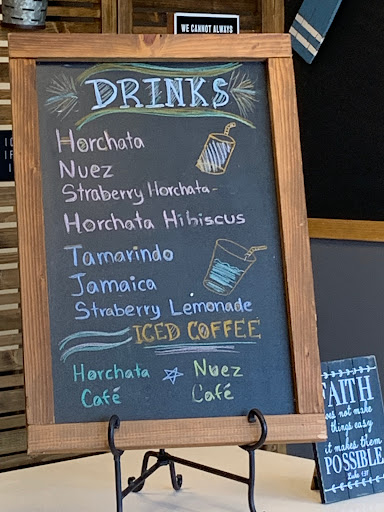 WE CANNOT ALWAYS
DRINKS
Horchata
Nuez
Straberry Horchata-
Horchata Hibiscus
Tamarindo
Jamaica
Straberry Lemonade
ICED COFFEE
Horchata Café
Nuez Café
FAITH
does not make
things easy
it makes them
POSSIBLE
Luke 1:37